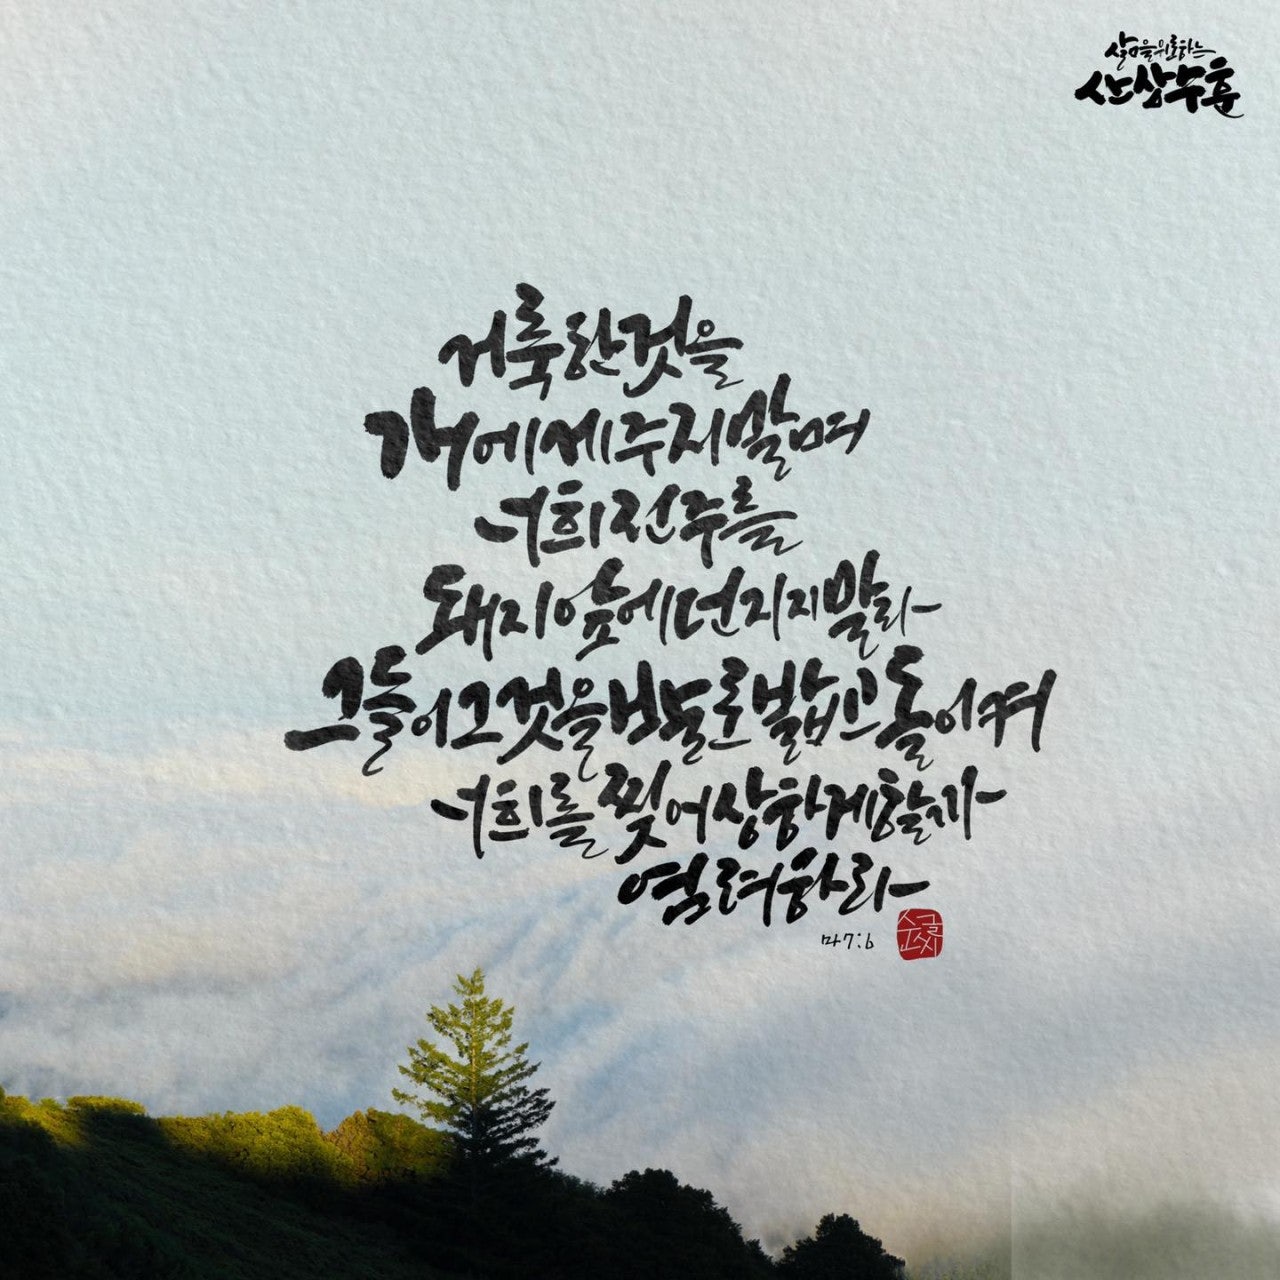 삶을위로하는
산상수훈
거룩한것을
개에게주지말며
너희진주를
돼지앞에던지지말라
그들이그것을발로밟고돌이켜
너희를찢어상하게할까
염려하라
마7:6
순글
씨